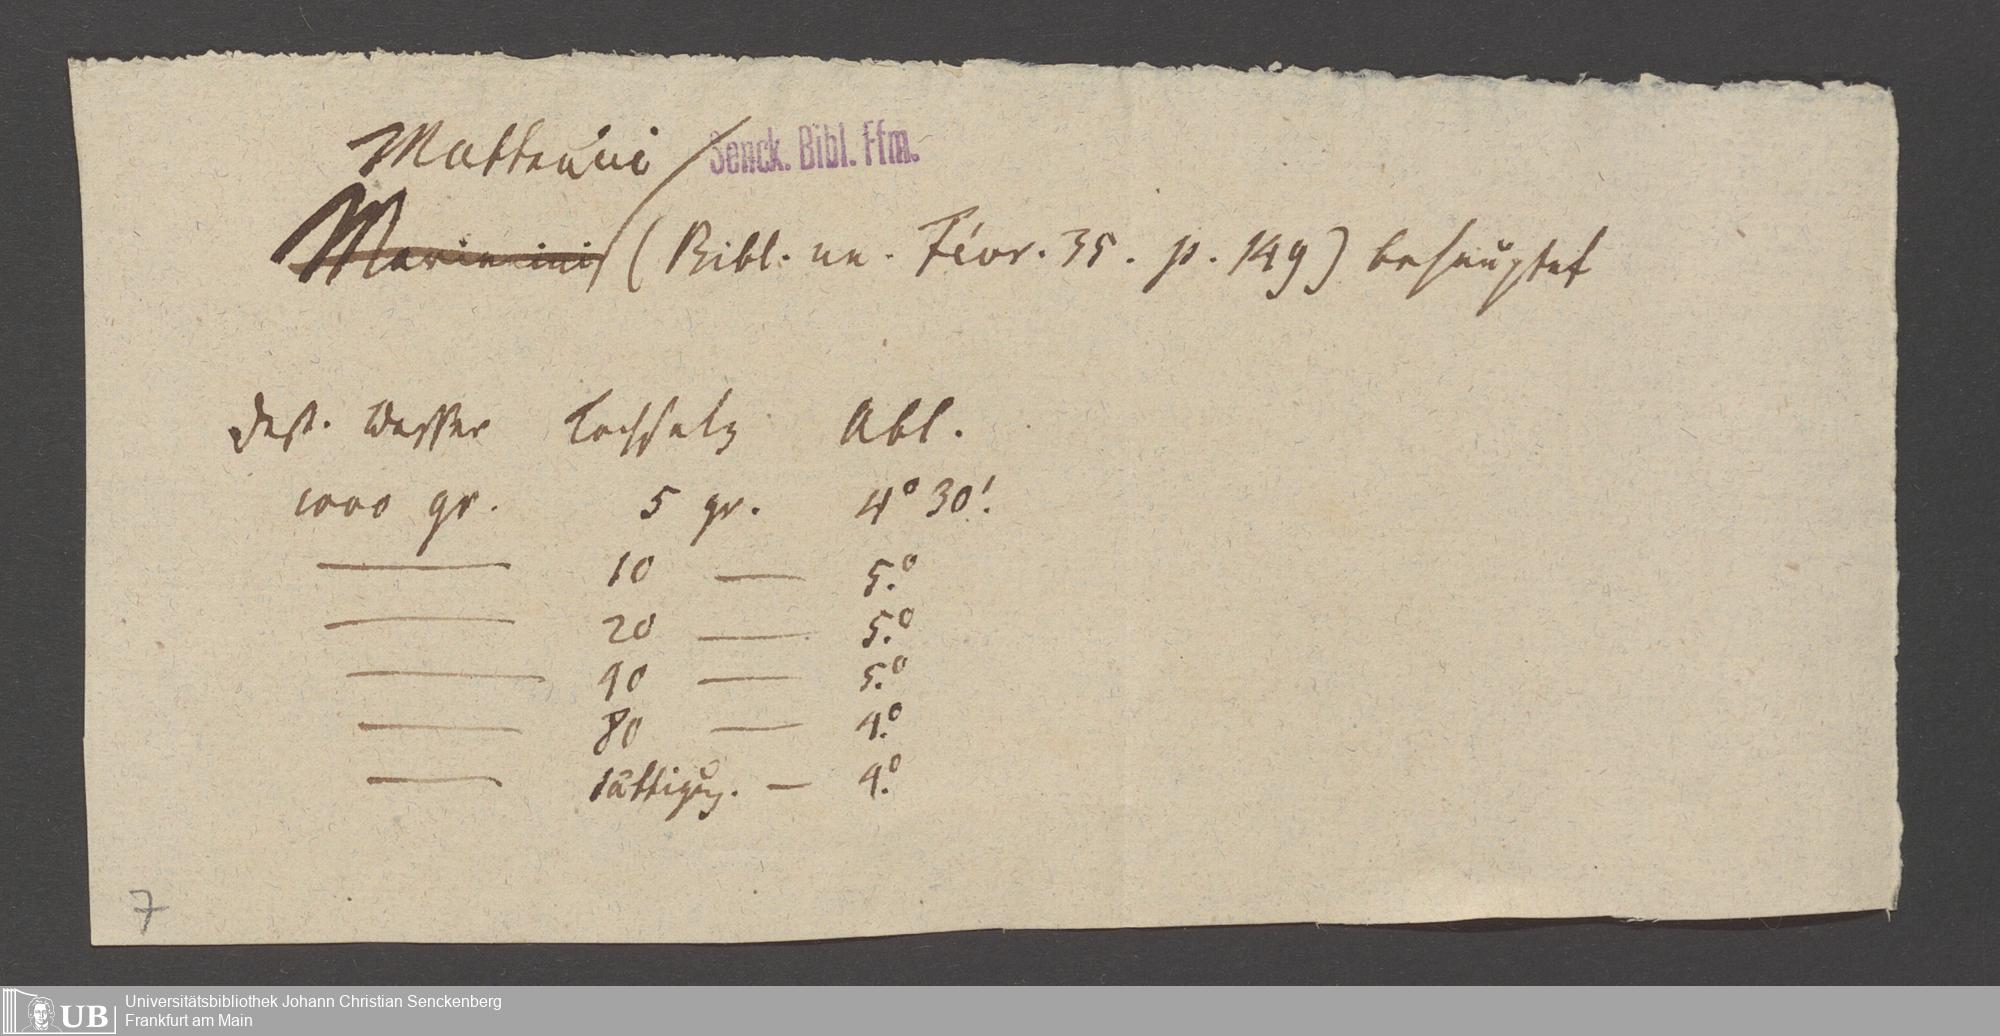 Matteuci Senck. Bibl. Ffm.
Marianini (Bibl. un. Févr. 35. p. 149) behauptet
Dest. Wasser Kochsalz Abl.
1000 gr. 5 gr. 4° 30'.
— 10 — 5.°
— 20 — 5.°
— 40 — 5.°
— 80 — 4.°
— sättigug. — 4.°
7
UB Universitätsbibliothek Johann Christian Senckenberg
Frankfurt am Main